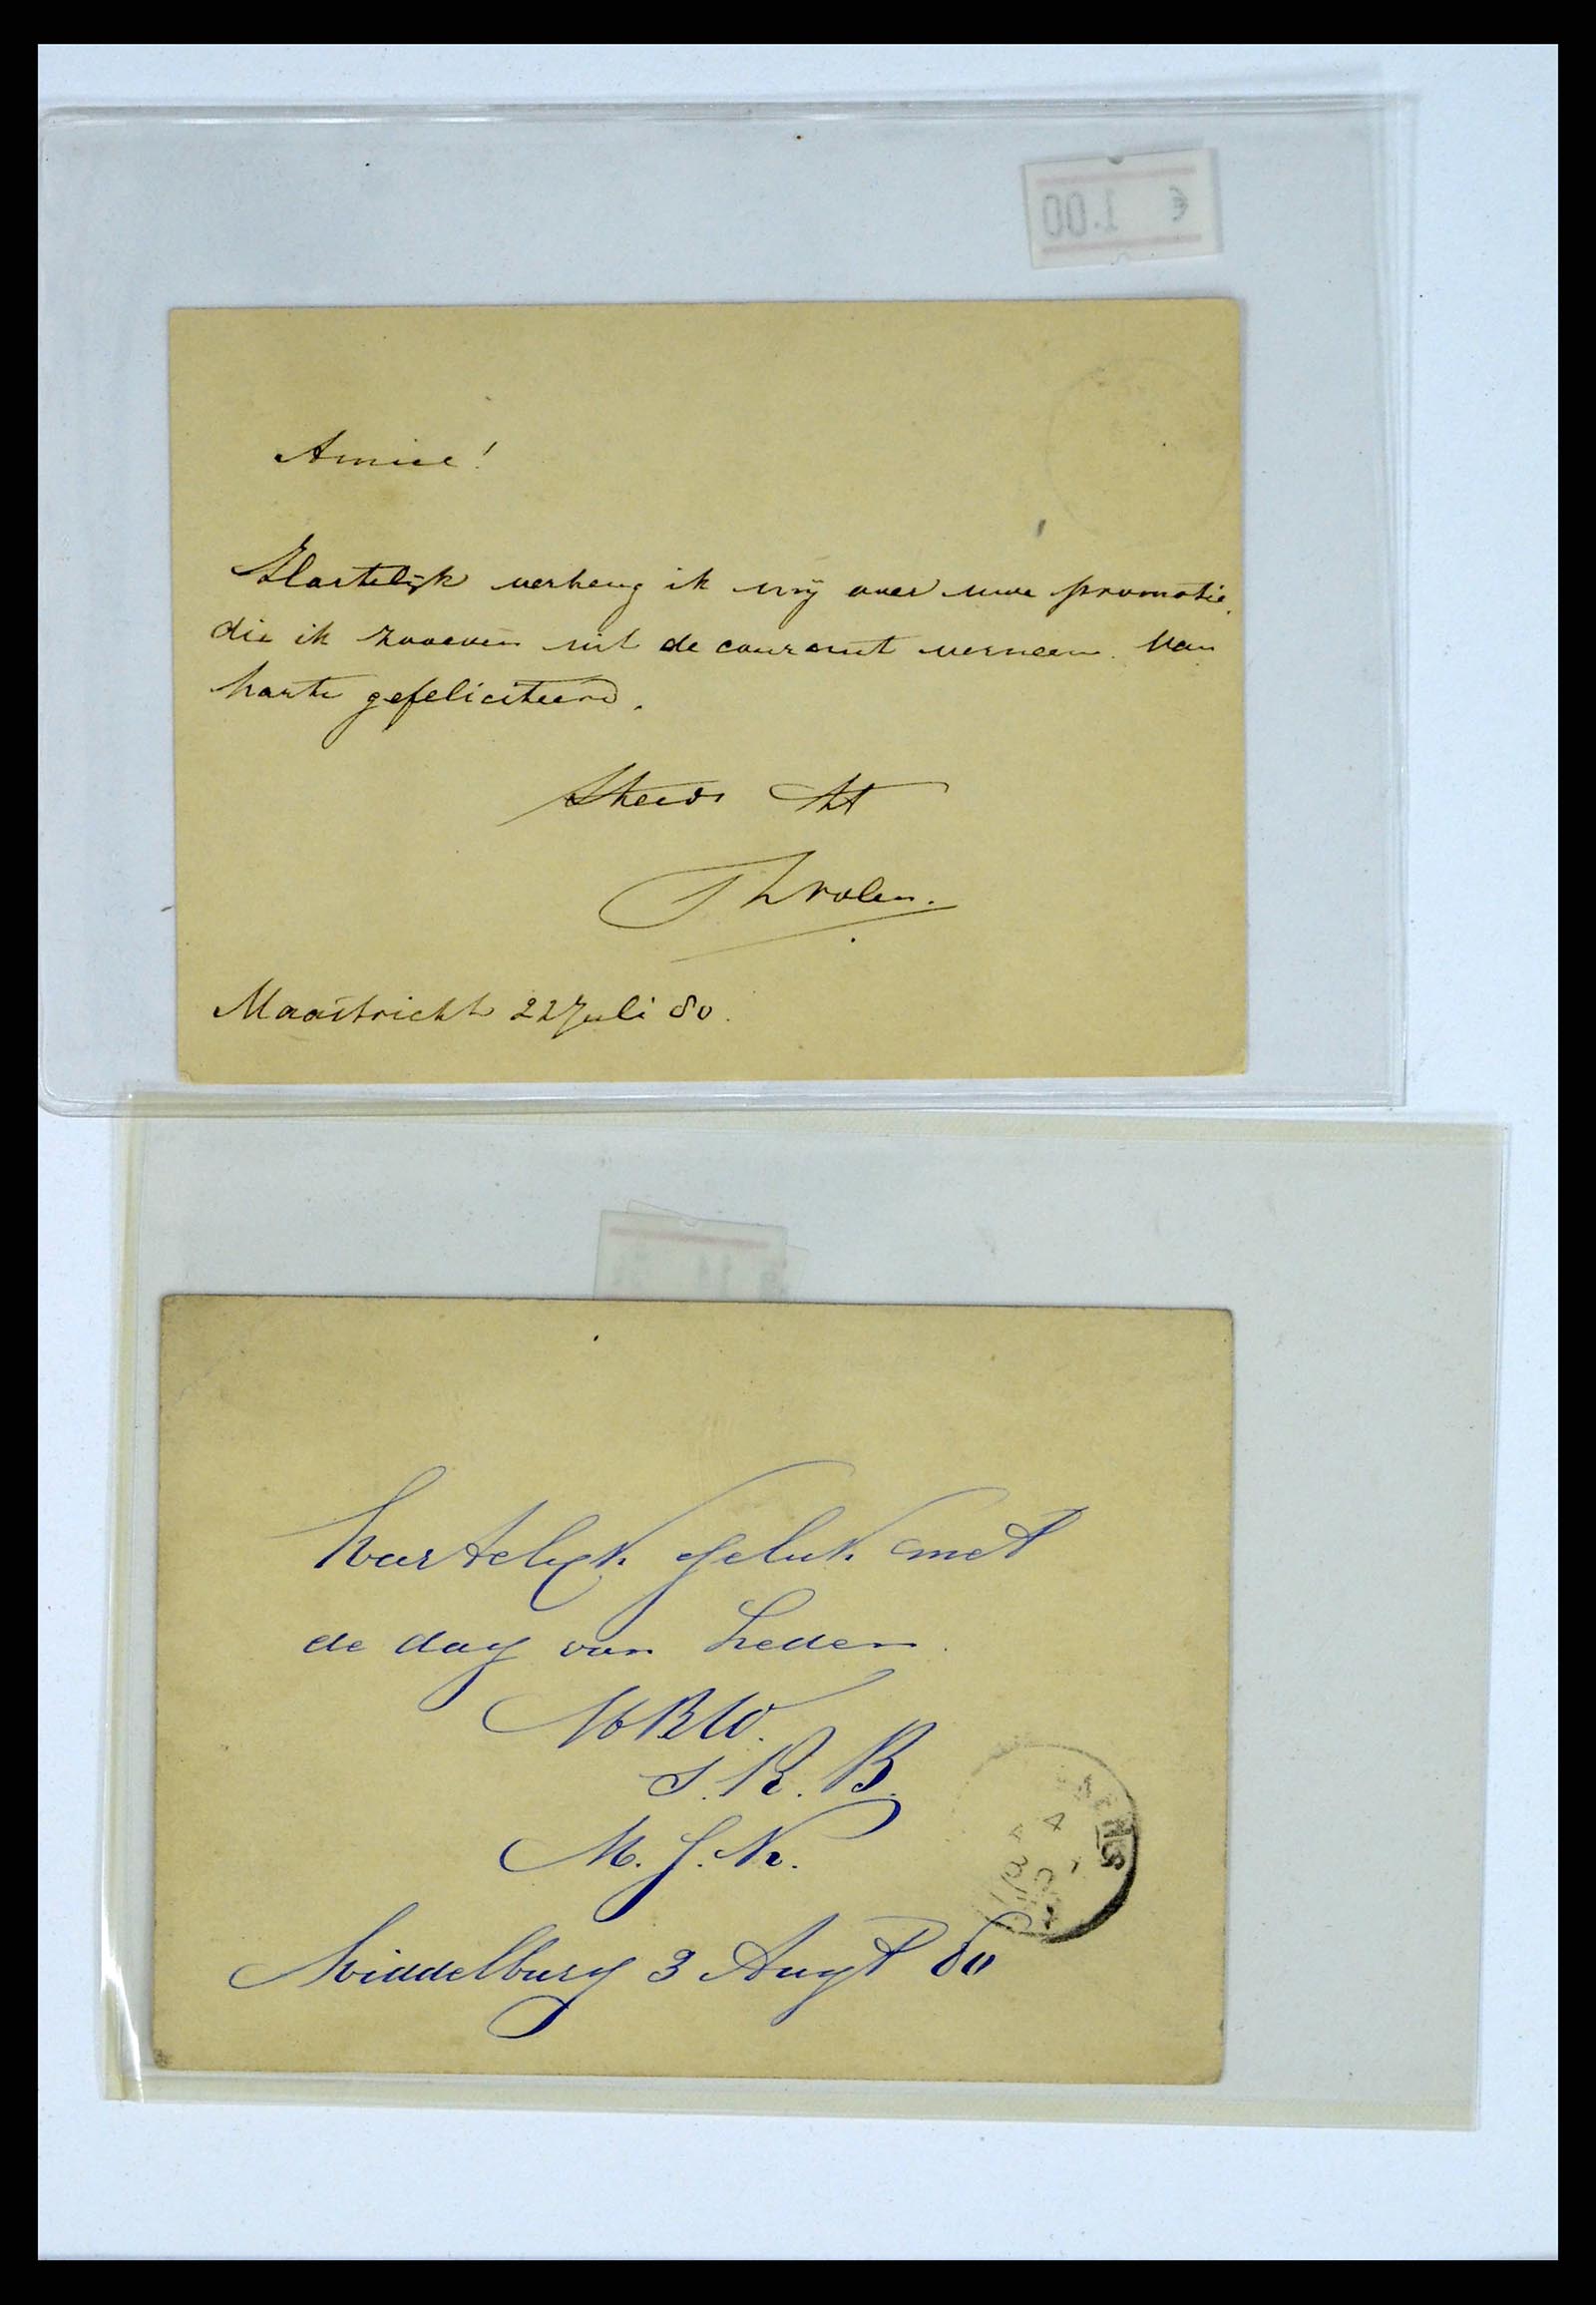 € 1.00
Amice!
Hartelijk verheug ik mij over uwe promotie,
die ik zooeven uit de courant verneem. Van
harte gefeliciteerd.
Steeds tt
Maastricht 22 Juli 80.
Hartelijk geluk met
de dag van heden.
M B W.
S. R. B.
M. J. N.
Middelburg 3 Augt 80